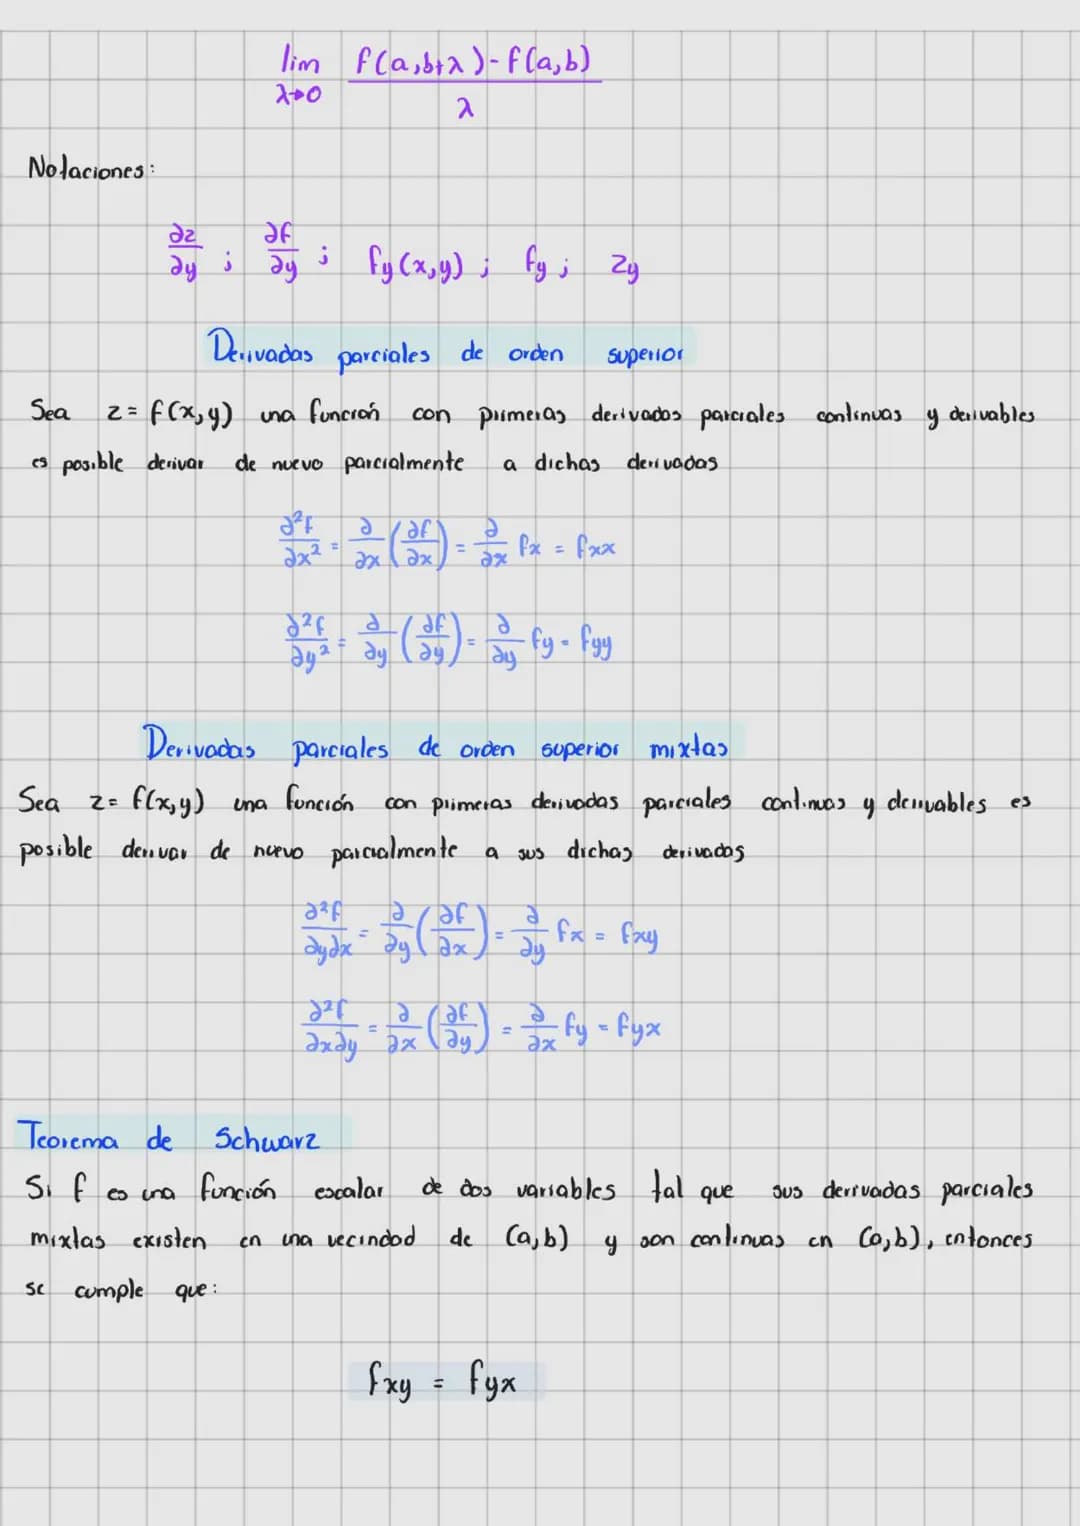 lim f(a,b+λ)-f(a,b)
λ→0 λ
Notaciones:
∂z/∂y ; ∂f/∂y ; fy(x,y) ; fy ; zy
Derivadas parciales de orden superior
Sea z = f(x,y) una función con primeras derivadas parciales continuas y derivables
es posible derivar de nuevo parcialmente a dichas derivadas
∂²f/∂x² = ∂/∂x (∂f/∂x) = ∂/∂x fx = fxx
∂²f/∂y² = ∂/∂y (∂f/∂y) = ∂/∂y fy = fyy
Derivadas parciales de orden superior mixtas
Sea z = f(x,y) una función con primeras derivadas parciales continuas y derivables es
posible derivar de nuevo parcialmente a sus dichas derivadas
∂²f/∂y∂x = ∂/∂y (∂f/∂x) = ∂/∂y fx = fxy
∂²f/∂x∂y = ∂/∂x (∂f/∂y) = ∂/∂x fy = fyx
Teorema de Schwarz
Si f es una función escalar de dos variables tal que sus derivadas parciales
mixtas existen en una vecindad de (a,b) y son continuas en (a,b), entonces
se cumple que:
fxy = fyx